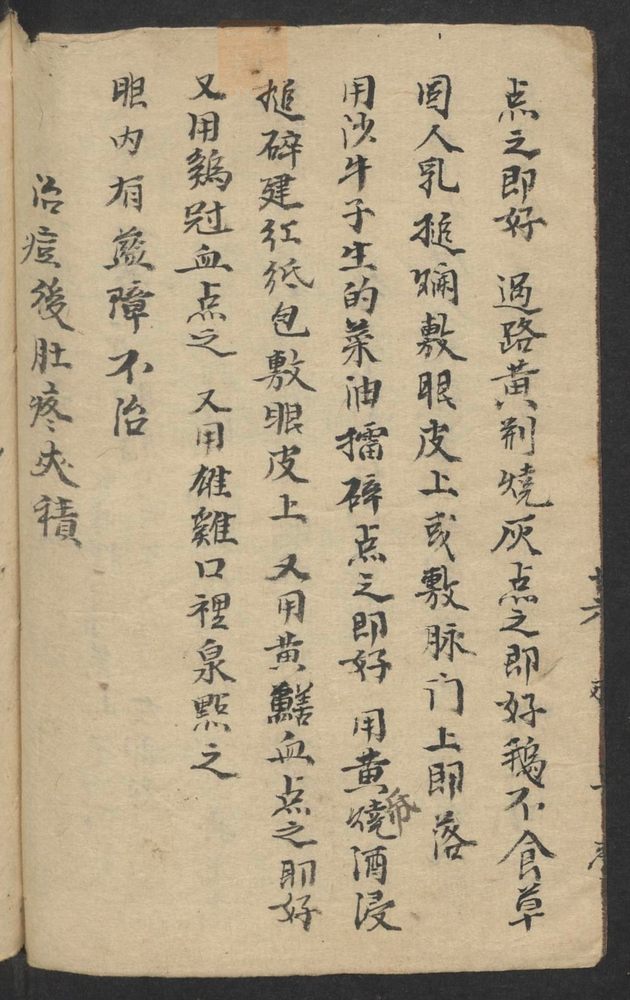 点之即好 過路黄荆燒灰点之即好 鵝不食草
用人乳搥爛敷眼皮上或敷脉门上即落
用沙牛子生的菜油擂碎点之即好 用黄紙燒酒浸
搥碎建红纸包敷眼皮上 又用黄鱔血点之即好
又用鷄冠血点之 又用雄雞口裡泉點之
眼内有蓝障不治
治痘後肚疼夾積